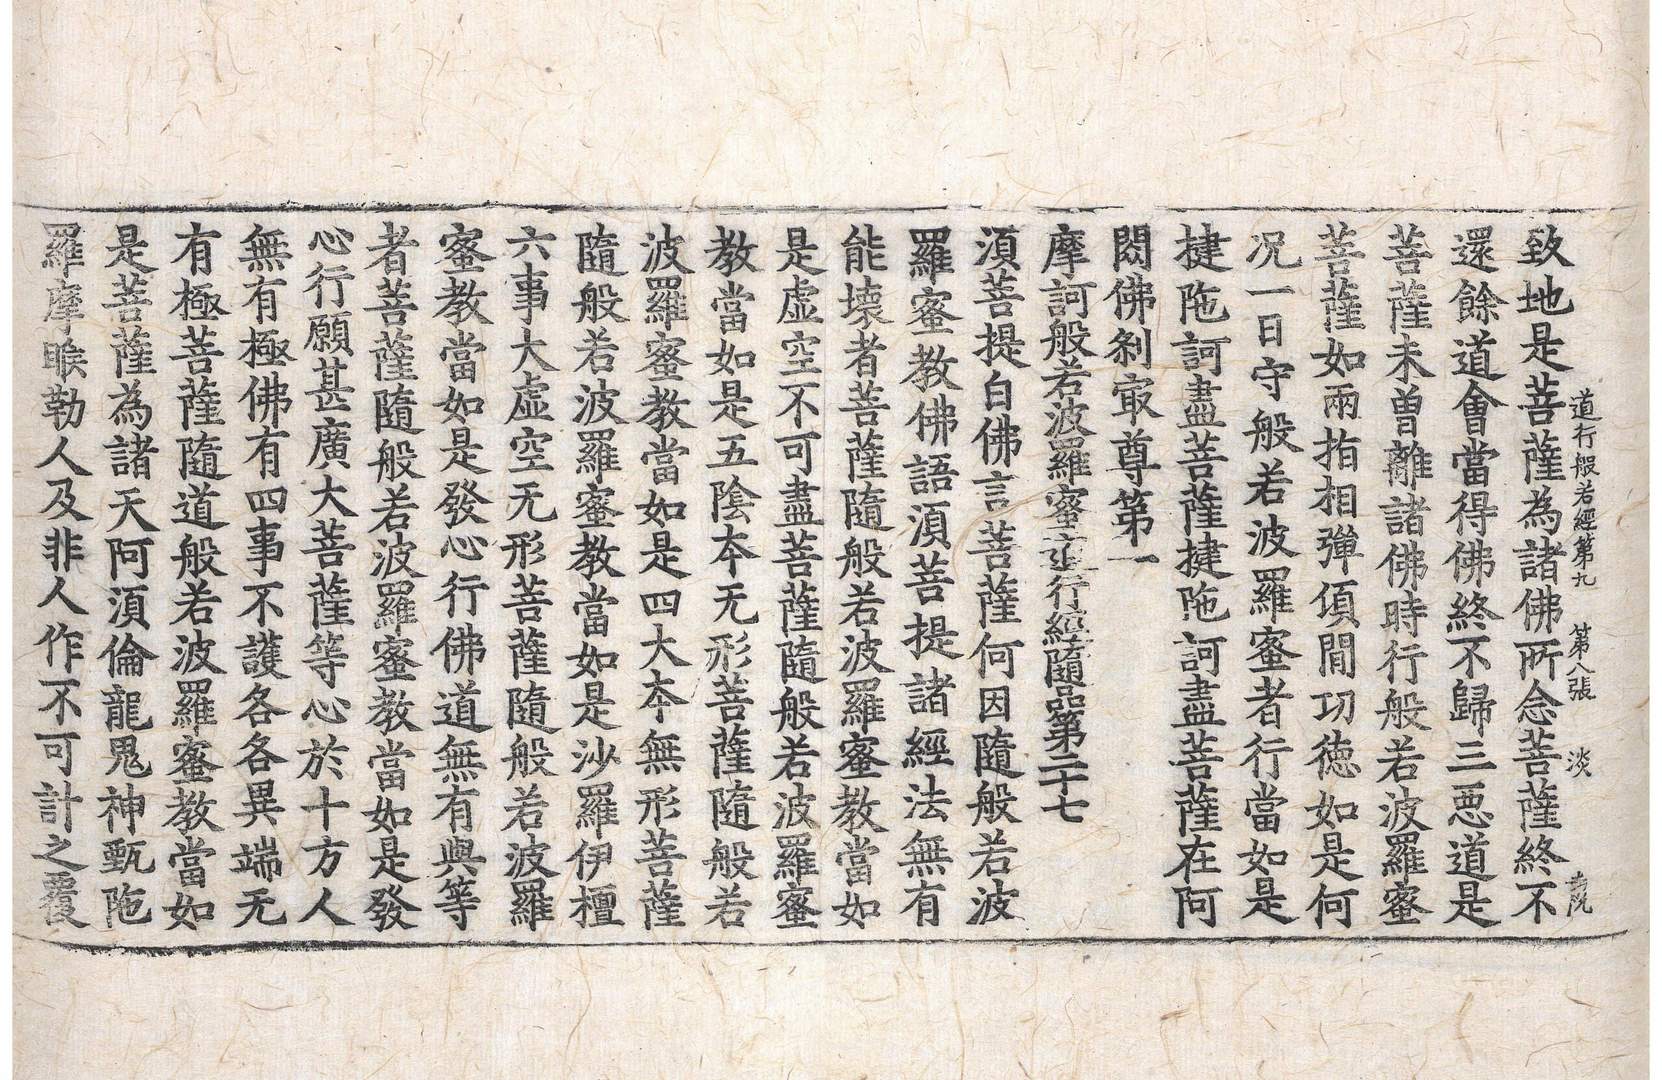 道行般若經第九 第八張 淡
致地是菩薩為諸佛所念菩薩終不
還餘道會當得佛終不歸三惡道是
菩薩未曾離諸佛時行般若波羅蜜
菩薩如兩指相彈傾間功德如是何
况一日守般若波羅蜜者行當如是
揵陁訶盡菩薩揵陁訶盡菩薩在阿
閦佛剎㝡尊第一
摩訶般若波羅蜜道行經隨品第二十七
湏菩提白佛言菩薩何因隨般若波
羅蜜教佛語湏菩提諸經法無有
能壞者菩薩隨般若波羅蜜教當如
是虛空不可盡菩薩隨般若波羅蜜
教當如是五陰夲无形菩薩隨般若
波羅蜜教當如是四大夲無形菩薩
隨般若波羅蜜教當如是沙羅伊檀
六事大虛空无形菩薩隨般若波羅
蜜教當如是發心行佛道無有與等
者菩薩隨般若波羅蜜教當如是發
心行願甚廣大菩薩等心於十方人
無有極佛有四事不護各各異端无
有極菩薩隨道般若波羅蜜教當如
是菩薩為諸天阿湏倫龍鬼神甄陁
羅摩睺勒人及非人作不可計之覆